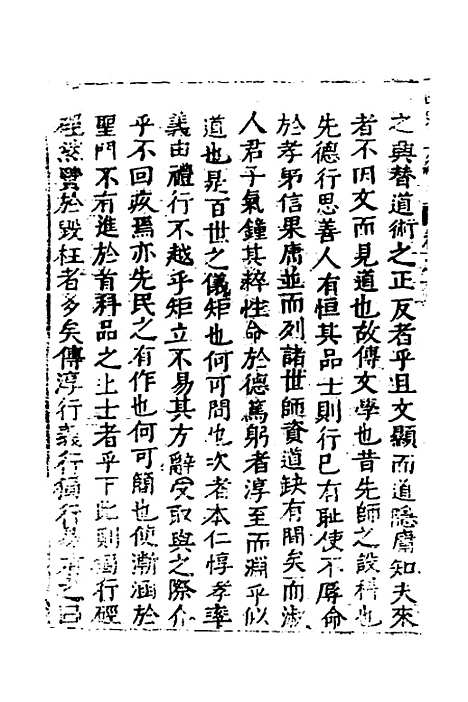 之興替道術之正反者乎且文顯而道隱膚知夫來
者不因文而見道也故傳文學也昔先師之設科也
先德行思善人有恒其品士則行己有耻使不辱命
於孝弟信果庸並而列諸世師資道缺有間矣而淑
人君子氣鐘其粹性命於德篤躬者淳至而淵乎似
道也是百世之儀矩也何可問也次者本仁惇孝率
義由禮行不越乎矩立不易其方辭受取與之際介
乎不回疚焉亦先民之有作也何可簡也使漸涵於
聖門不有進於首科品之上士者乎下此則獨行硜
硜然賢於毀枉者多矣傳淳行義行獨行